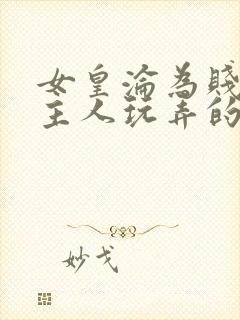 女皇淪為賤
主人玩弄的
妙戈